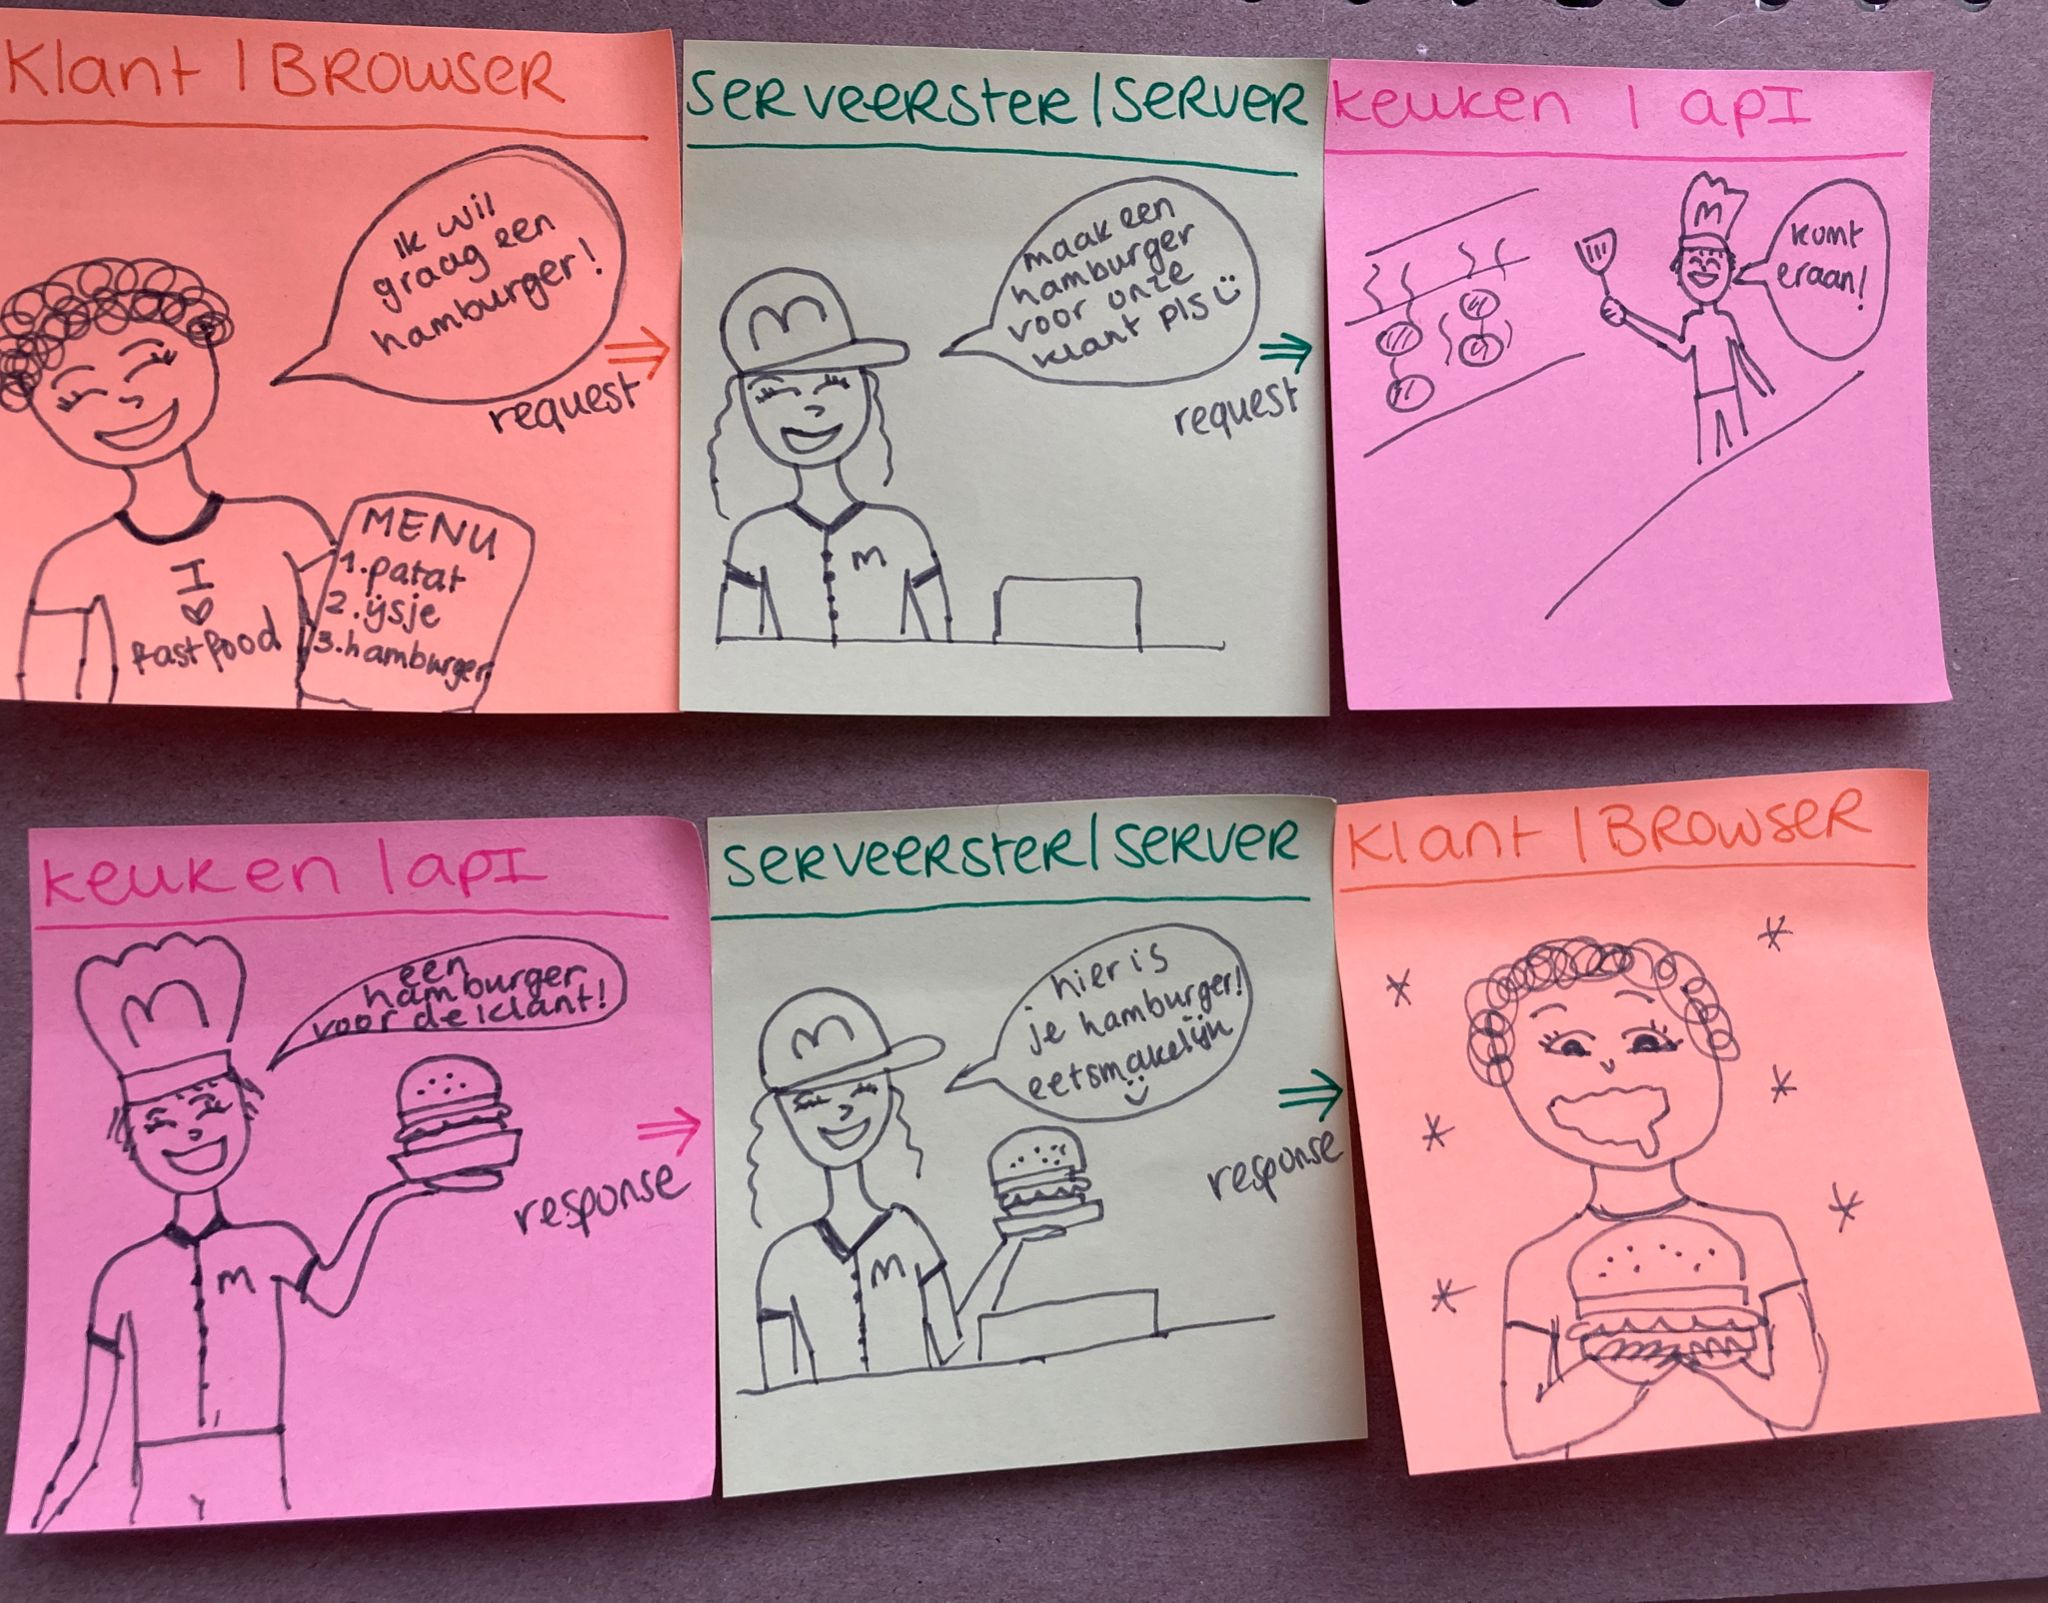 Klant | BROWSER
Ik wil
graag een
hamburger!
request
MENU
1. patat
2. ijsje
3. hamburger
I
♡
fastfood
SERVEERSTER | SERVER
maak een
hamburger
voor onze
klant pls
request
M
M
keuken | apI
komt
eraan!
M
keuken | apI
een
hamburger
voor de klant!
response
M
M
SERVEERSTER | SERVER
hier is
je hamburger!
eetsmakelijn
response
M
M
Klant | BROWSER